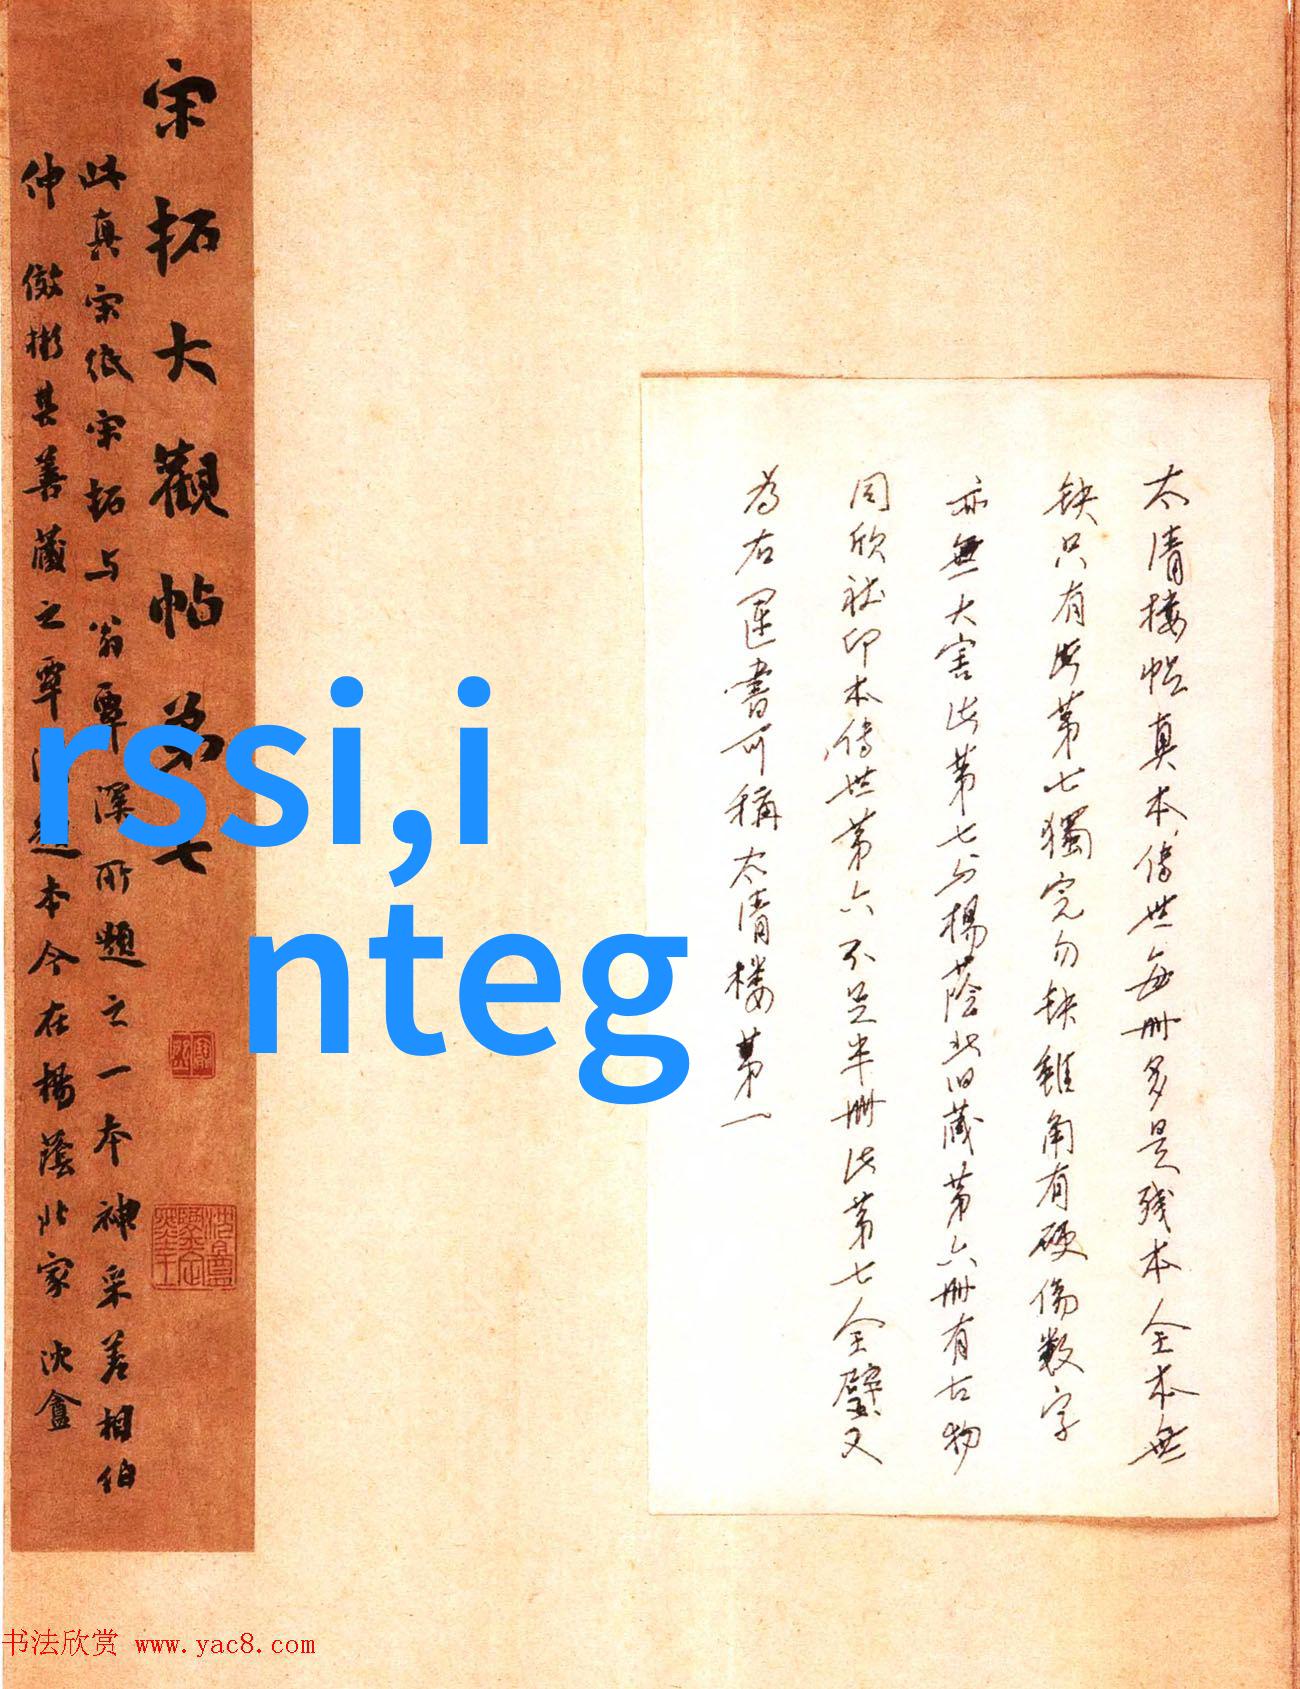 太清楼帖真本傳世每册多是残本全本無
缺只有此第七獨完勿缺雖角有硬傷数字
亦無大害此第七与楊蔭北旧藏第六册有古物
同欣社印本傳世第六不足半册此第七全璧又
為右軍書可稱太清楼第一
宋拓大觀帖第七
此真宋纸宋拓与翁覃深所題之一本神采若相伯
仲儆彬其善藏之覃
題本今在楊蔭北家
rssi,i
nteg
书法欣赏 www.yac8.com